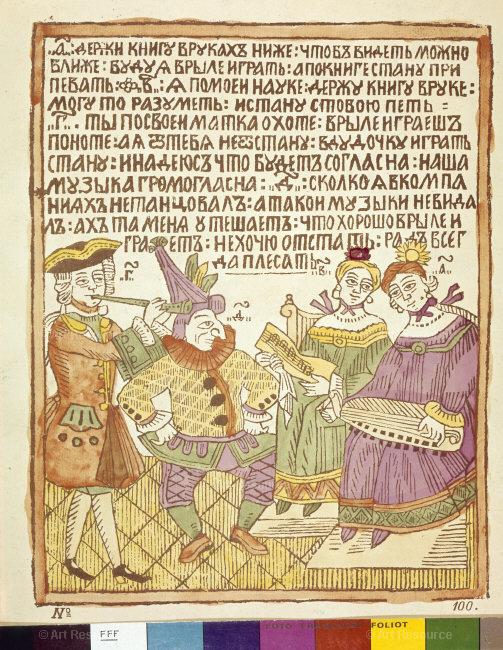 „А„ держи книгу вруках ниже: чтобъ видеть можно
ближе: будуя врыле играть: апокниге стану при
певать „В„: я помоеи науке: держу книгу вруке:
могу то разуметь: истану стобою петь =
„Г„. ты посвоеи матка охоте: врыле играешъ
поноте: ая ѿ тебя не ѿстану: вдудочку играть
стану: инадеюсъ что будетъ согласна: наша
музыка громогласна: „Д„: сколко явкомпа
ниахъ нетанцовалъ: атакои музыки невида
лъ: ахъ та мена утешаетъ: что хорошо врыле и
граетъ: нехочю отстать: радъ всег
да плесать
„Г„
„В„
„А„
„Д„
№
100.
FOLIOT
© Art Res
FFF
© Art Resource